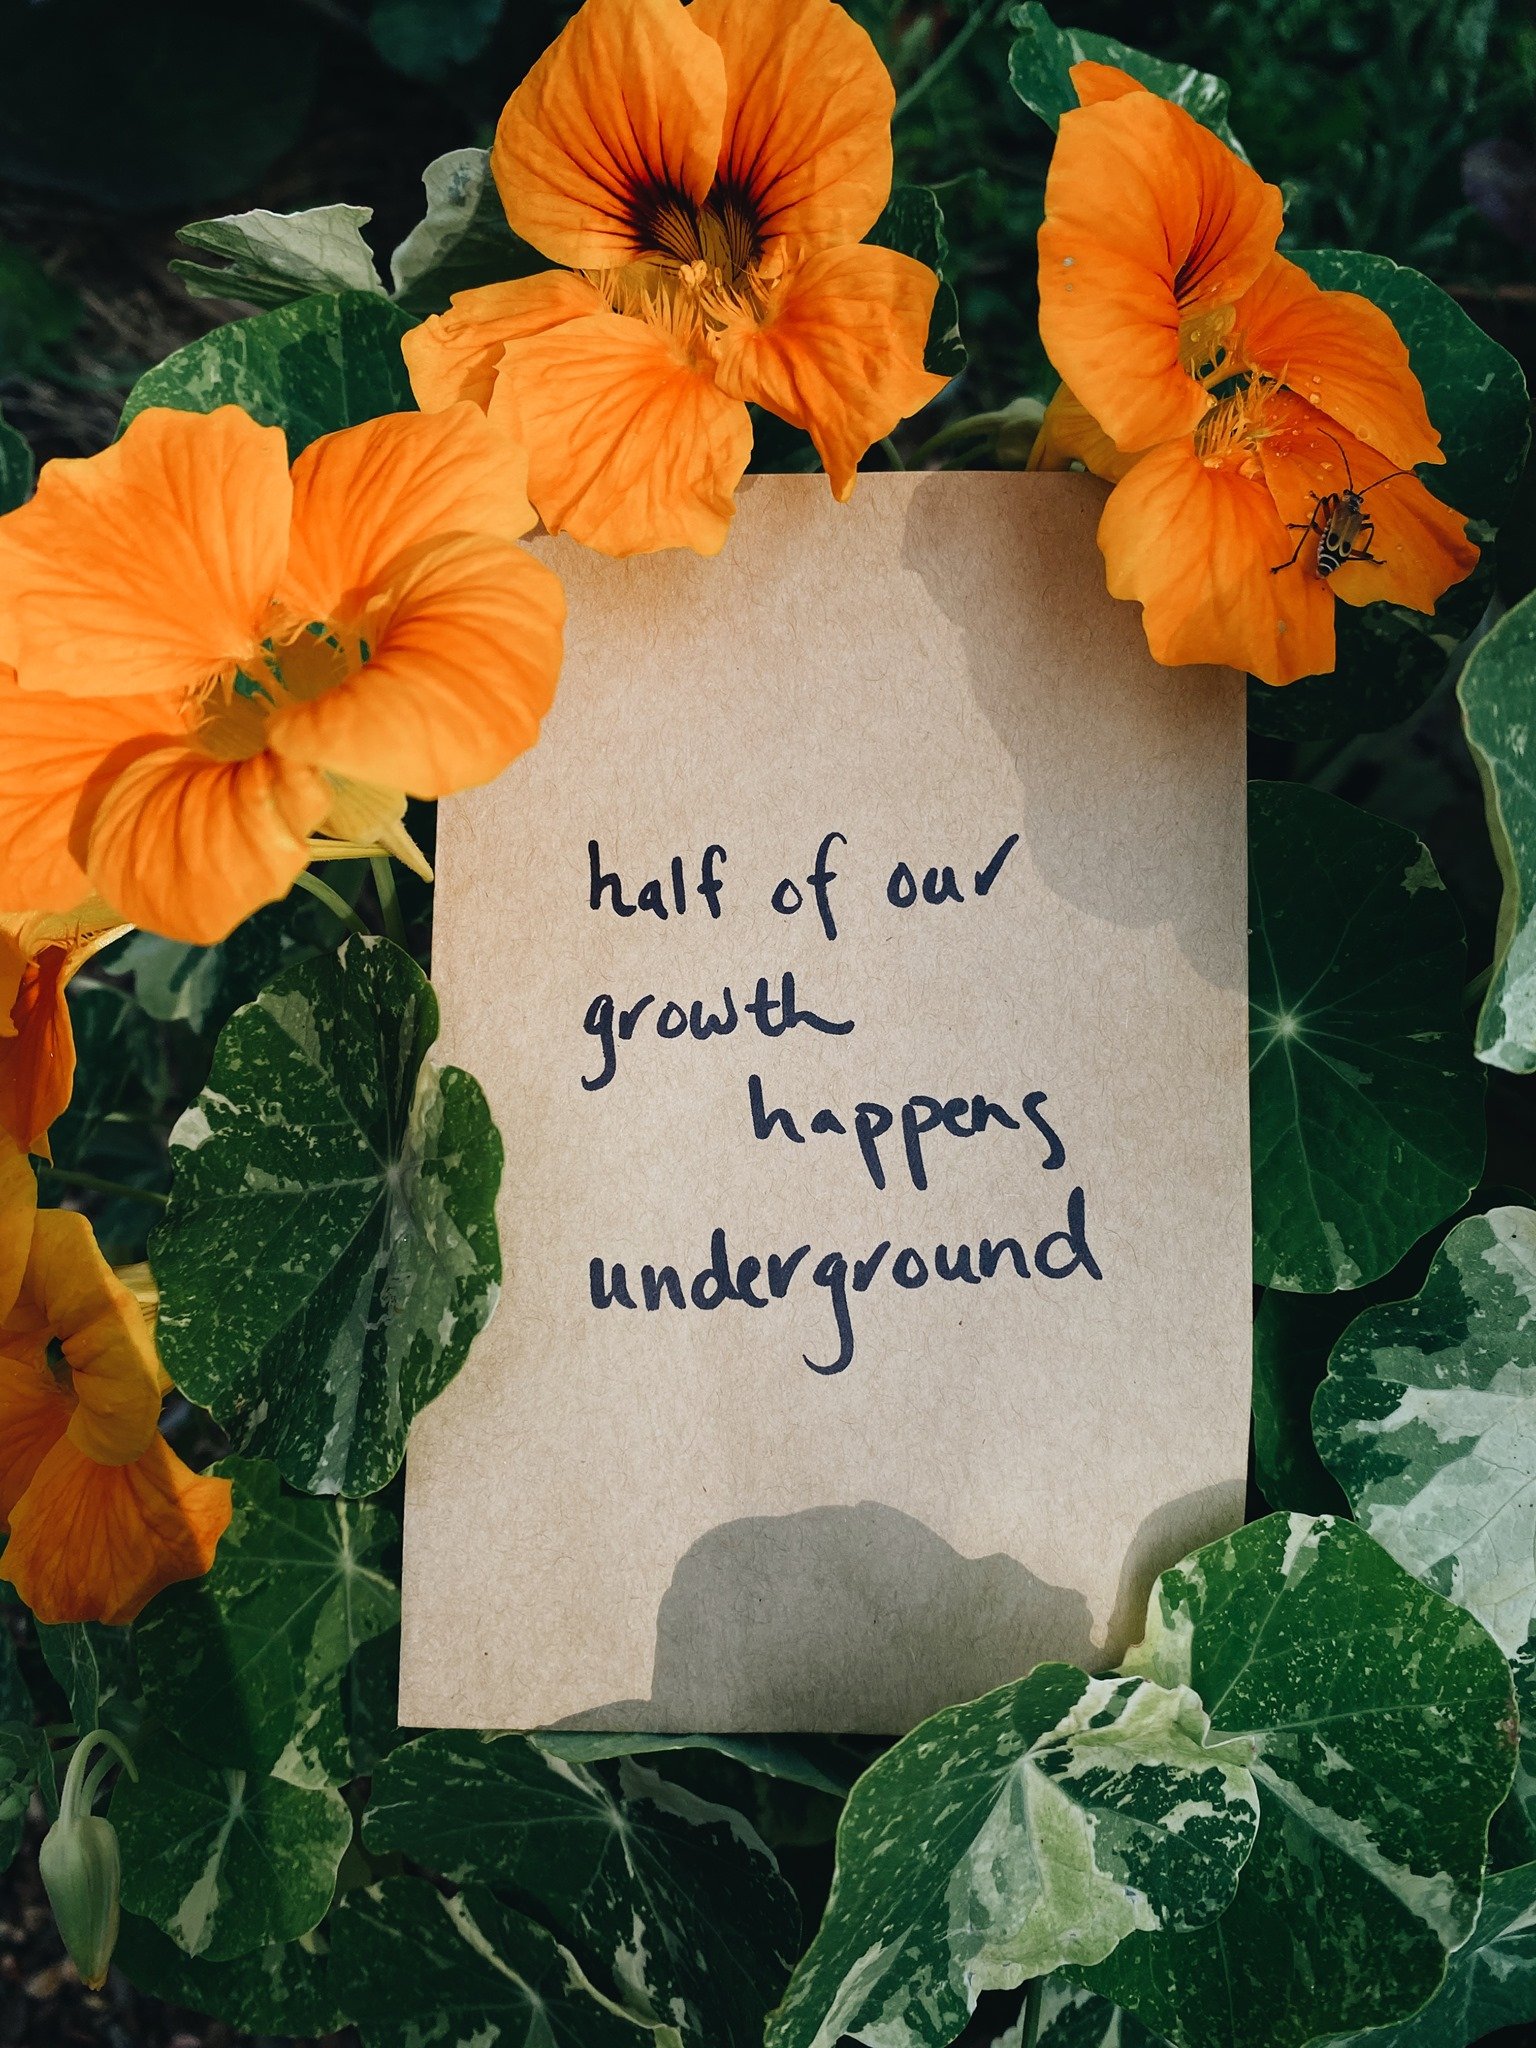 half of our
growth
happens
underground